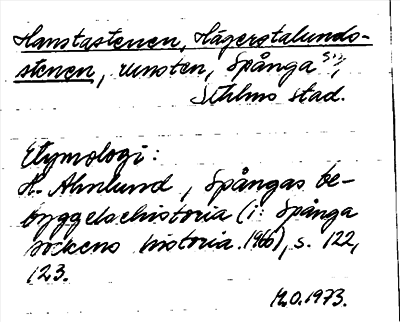 Hanstastenen, Hägerstalunds-
stenen, runsten, Spånga sn,
Sthlms stad.
Etymologi:
H. Ahnlund, Spångas be-
byggelsehistoria (i: Spånga
sockens historia. 1966), s. 122,
123.
1973.